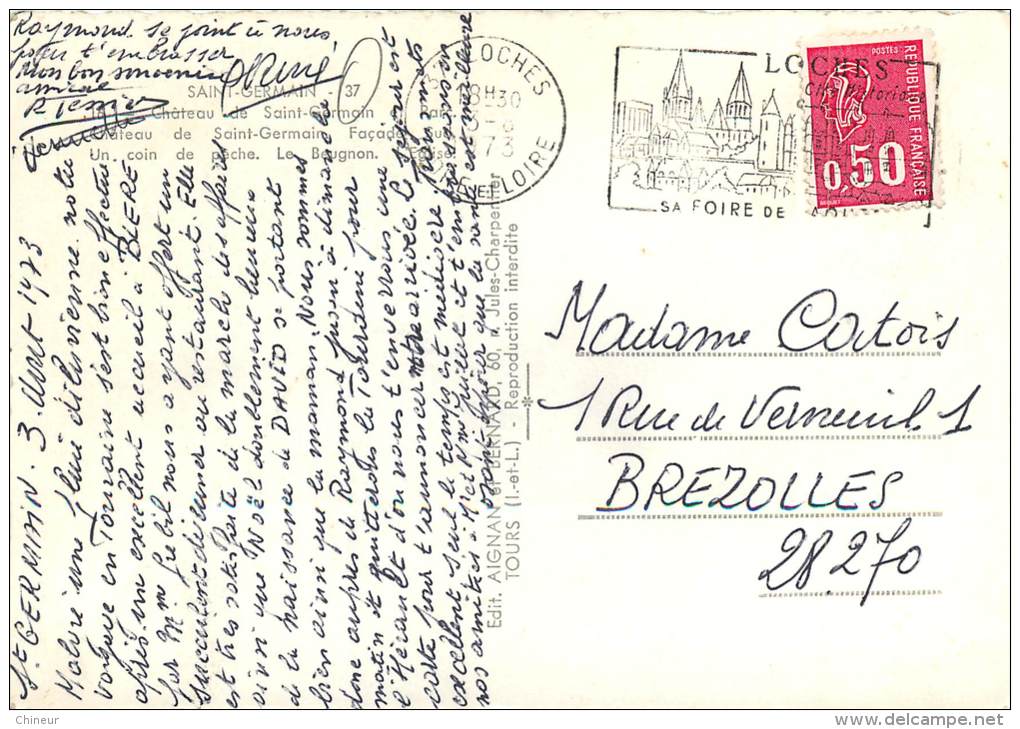 Raymond se joint à nous
pour t'embrasser
Mon bon souvenir
amical
R Tessier
SAINT-GERMAIN - 37
Château de Saint-Germain
Château de Saint-Germain Façade
Un coin de pêche. Le Beugnon. Eglise.
LOCHES
18H30
3
1973
INDRE ET LOIRE
LOCHES
Cité Historique
SA FOIRE DE
POSTES
REPUBLIQUE FRANÇAISE
0,50
BEQUET
St GERMAIN. 3. Août 1973
Malgré une pluie diluvienne. notre
voyage en Touraine s'est bien effectué
après un excellent accueil à BLERE
par Mme Grebil nous ayant offert un
succulent déjeuner au restaurant. Elle
est très satisfaite de la marche des affaires
ainsi que Noël doublement heureux
de la naissance de DAVID se portant
bien ainsi que la maman. Nous sommes
donc auprès de Raymond jusqu'à dimanche
matin et quitterons la Touraine pour
l'Hérault d'où nous t'enverrons une
carte pour t'annoncer notre arrivée. Le séjour est
excellent seul le temps est médiocre Transmets
nos amitiés à Mr et Mme et t'embrassons bien
espérant que la santé est meilleure
Edit. AIGNAN et BERNARD, 60, r. Jules-Charpentier
TOURS (I.-et-L.) - Reproduction interdite
Madame Catois
1 Rue de Verneuil 1
BREZOLLES
28270
Chineur
delcampe.net